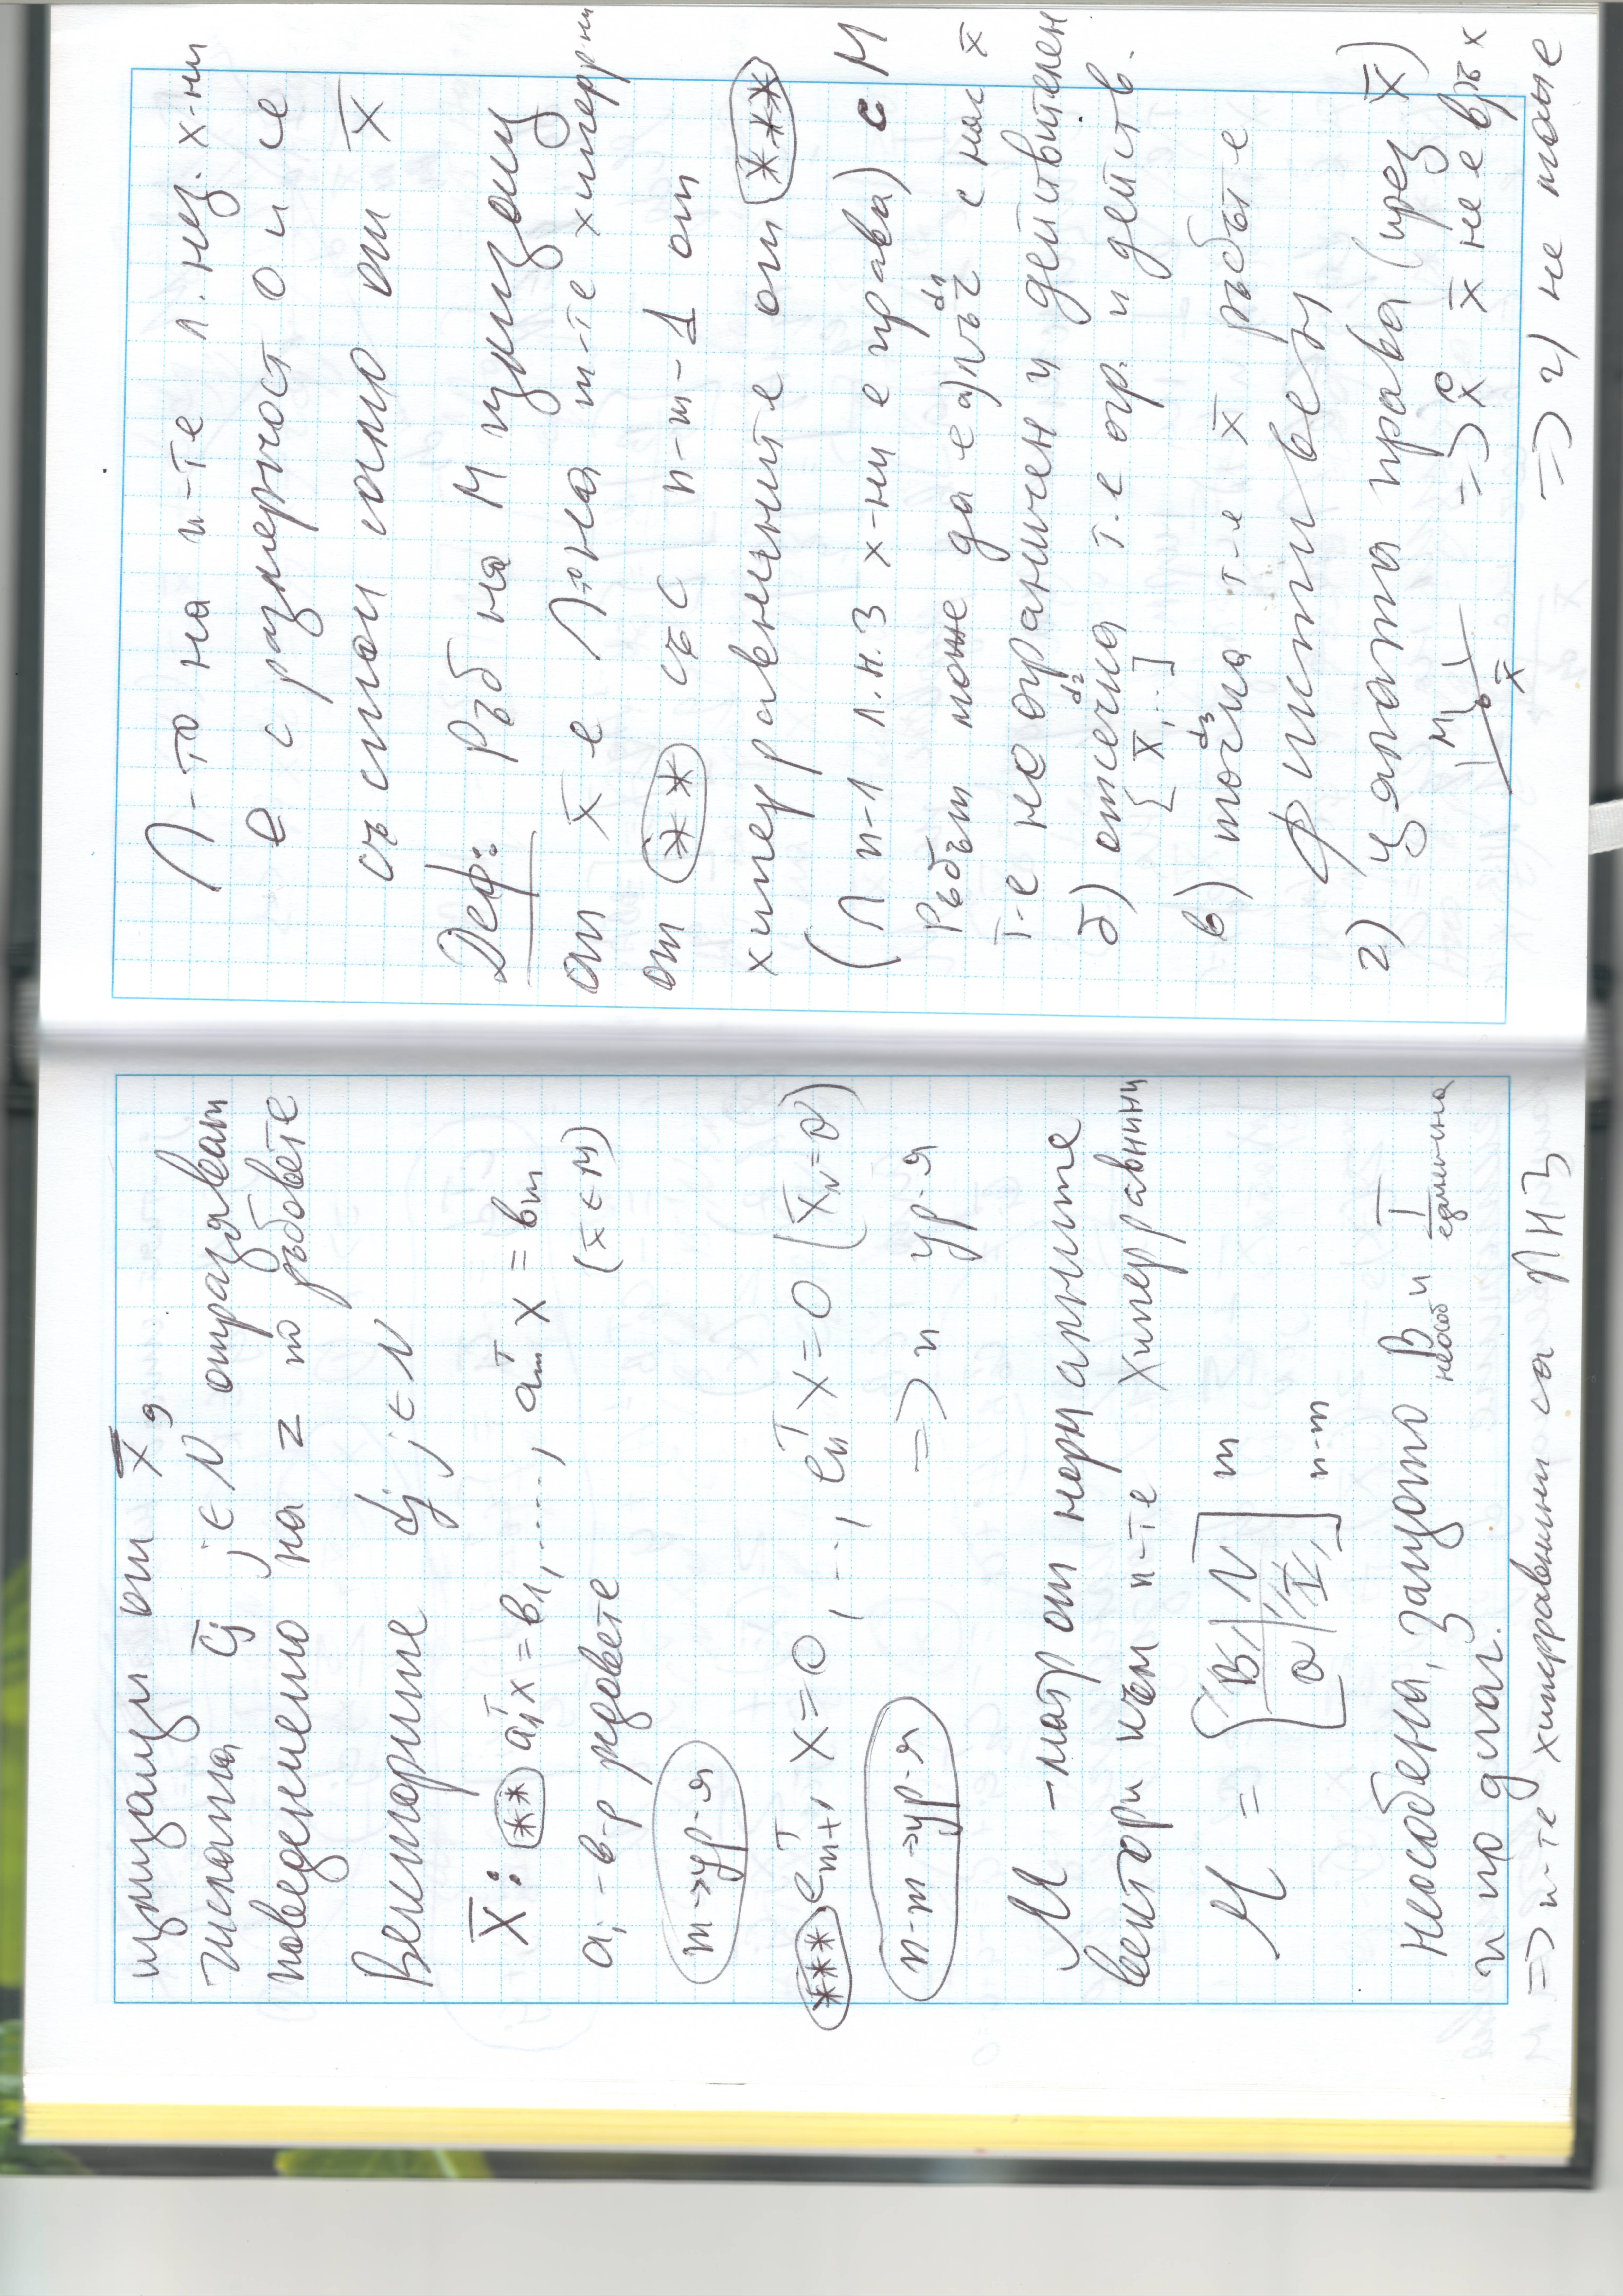 излизащи от x̄,
числата c̄j j ∈ N определят
поведението на z по ръбовете
Векторите dj j ∈ N
x̄: (**) a₁ᵀx = b₁, ...., aₘᵀ x = bₘ
aᵢ - в-р редовете (x̄ ∈ M)
m → ур-я
(***) eₘ₊₁ᵀ x = 0, ..., eₙᵀ x = 0 (x̄_N = 0)
n-m → ур-я => n ур-я
M - матр от нормалните
вектори към n-те хиперравнини
M = [B | N / 0 | I] m n-m
неособена, защото B неособ и I единична
и по диаг.
=> n-те хиперравнини са ЛНЗ
П-то на n-те л. нез. х-ни
е с размерност 0 и се
състои само от x̄
Деф: Ръб на M излизащ
от x̄ е П-то на m-те хиперрни
от (**) със с n-m-1 от
хиперравнините от (***)
(П n-1 л.н.з х-ни е права) с M
Ръбът може да е а) лъч d₁ с нач x̄
т-е неограничен и действителен
б) отсечка d₂ т.е огр. и действ.
[x̄, ..]
в) точка d₃ т-е x̄ ръбът е
фиктивен
г) цялата права (през x̄)
M x̄ => x̄ x̄ не е връх
=> г) не може